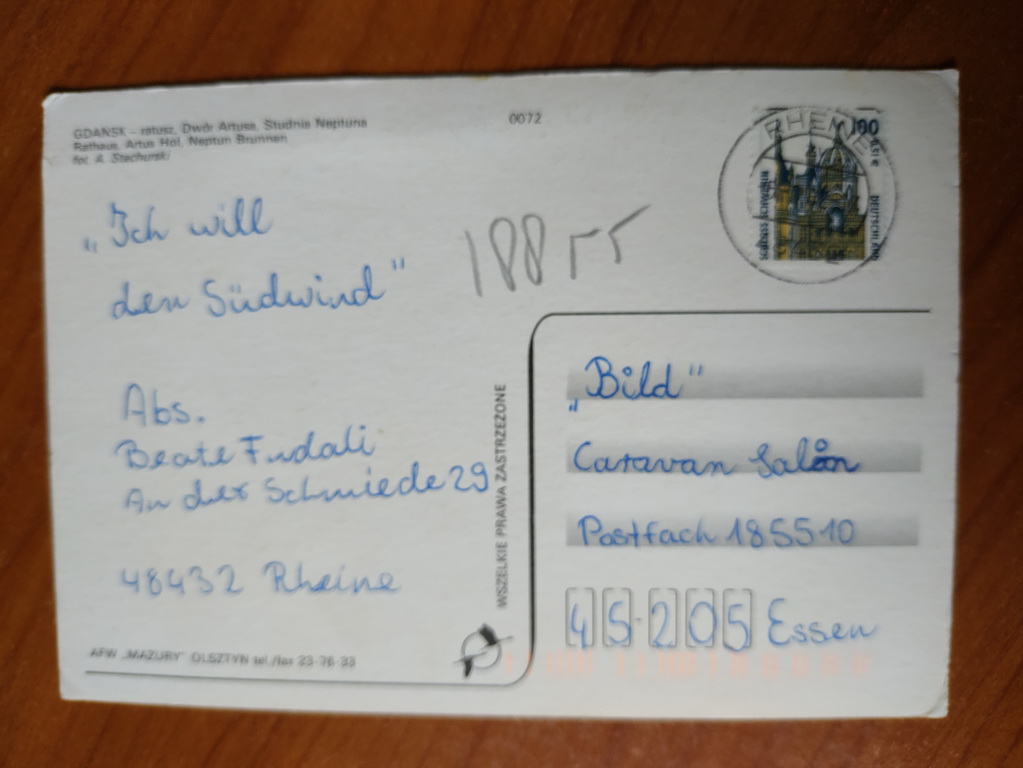 GDAŃSK – ratusz, Dwór Artusa, Studnia Neptuna
Rathaus, Artus Hof, Neptun Brunnen
fot. A. Stachurski
0072
RHEINE
100
0,51 €
DEUTSCHLAND
Schloss Schwerin
„Ich will
den Südwind"
188
Abs.
Beate Fudali
An der Schmiede 29
48432 Rheine
WSZELKIE PRAWA ZASTRZEŻONE
„Bild"
Caravan Salon
Postfach 185510
45205 Essen
AFW „MAZURY" OLSZTYN tel./fax 23-76-33